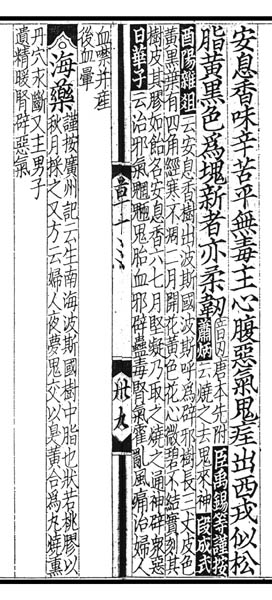 安息香味辛苦平無毒主心腹惡氣鬼疰出西戎似松
脂黃黑色爲塊新者亦柔韌
音刃唐本先附臣禹錫等謹按
蕭炳云燒之去鬼來神段成式
酉陽雜俎云安息香樹出波斯國波斯呼爲辟邪樹長三丈皮色
黃黑葉有四角經寒不凋二月開花黃色花心微碧不結實刻其
樹皮其膠如飴名安息香六七月堅凝乃取之燒之通神辟衆惡
日華子云治邪氣魍魎鬼胎血邪辟蠱毒腎氣霍亂風痛治婦人
卅九
血噤并產
後血暈
海藥
謹按廣州記云生南海波斯國樹中脂也狀若桃膠以
秋月採之又方云婦人夜夢鬼交以臭黃合爲丸燒熏
丹穴永斷又主男子
遺精暖腎辟惡氣